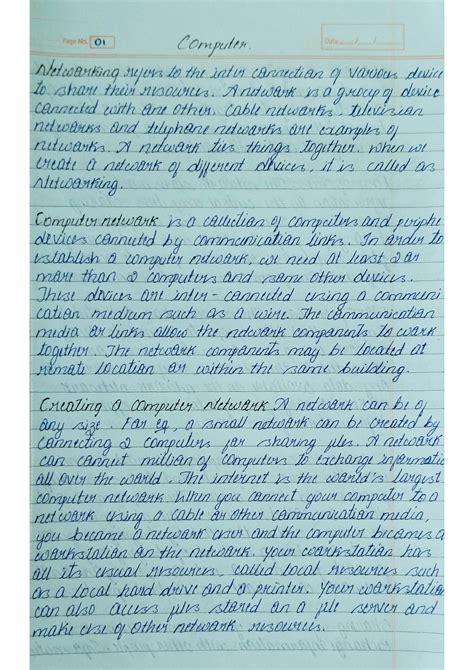 Page No. 01
Date
Computer.
Networking refers to the inter connection of various device
to share their resources. A network is a group of device
connected with one other. Cable networks, television
networks and telephone networks are examples of
networks. A network ties things together. When we
create a network of different devices, it is called as
Networking.
Computer network is a collection of computers and periphe
devices connected by communication links. In order to
establish a computer network, we need at least 2 or
more than 2 computers and some other devices.
These devices are inter-connected using a communi
cation medium such as a wire. The communication
media or links allow the network components to work
together. The network components may be located at
remote location or within the same building.
Creating a computer Network A network can be of
any size. For eg, a small network can be created by
connecting 2 computers for sharing files. A network
can connect million of computers to exchange informatic
all over the world. The internet is the world's largest
computer network. When you connect your computer to a
network using a cable or other communication media,
you became a network user and the computer becomes a
workstation on the network. Your workstation has
all its usual resources, called local resources such
as a local hard drive and a printer. Your workstation
can also access files stored on a file server and
make use of other network resources.